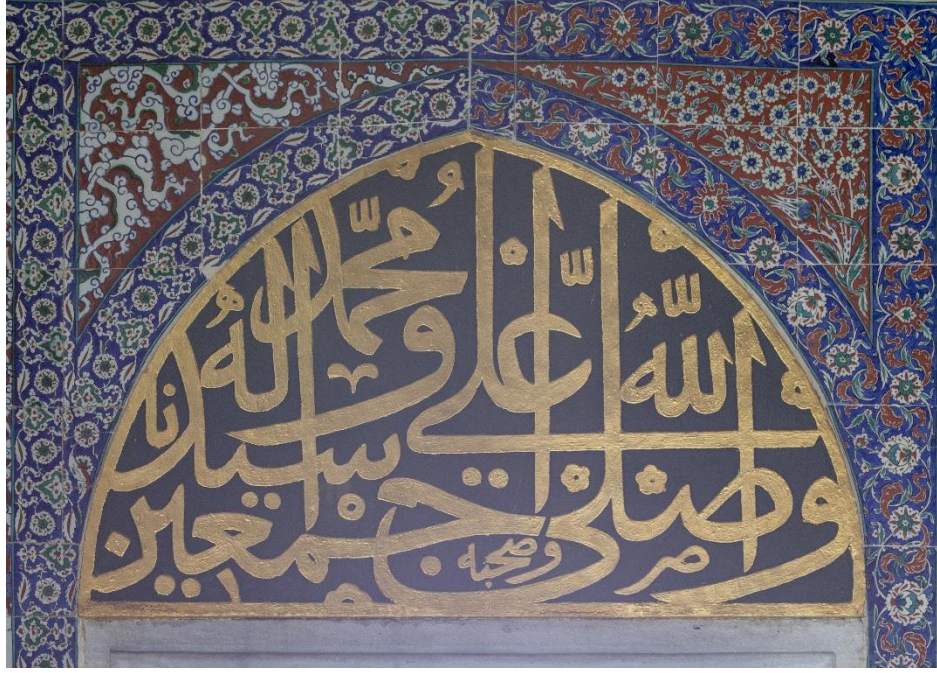 وصلى الله على سيدنا محمد وآله وصحبه أجمعين